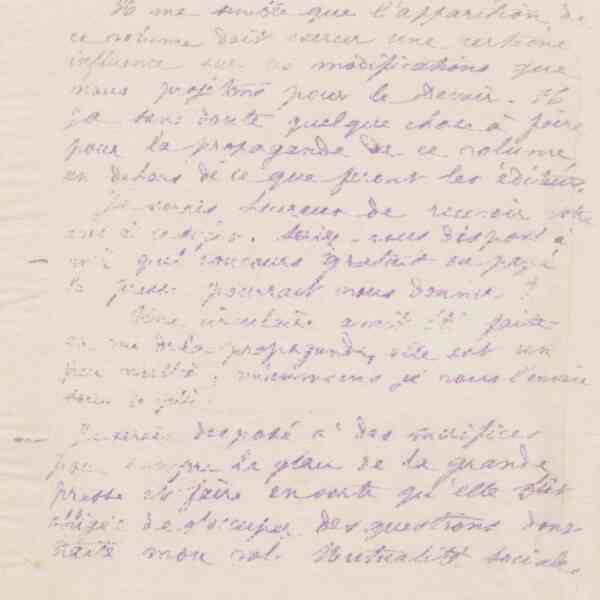 Il me semble que l'apparition de
ce volume doit exercer une certaine
influence sur les modifications que
nous projetons pour le Devoir. Il
y a sans doute quelque chose à faire
pour la propagande de ce volume,
en dehors de ce que feront les éditeurs.
Je serais heureux de recevoir votre
avis à ce sujet. vous disposé à
qui concours gratuit ou payé
la presse pourrait nous donner ?
Une circulaire avait été faite
en vue de la propagande, elle est un
peu néanmoins je vous l'envoie
sous ce pli.
Je serais disposé à des sacrifices
pour rompre la glace de la grande
presse et faire en sorte qu'elle fût
obligée de s'occuper des questions dont
traite mon vol. Mutualité sociale.